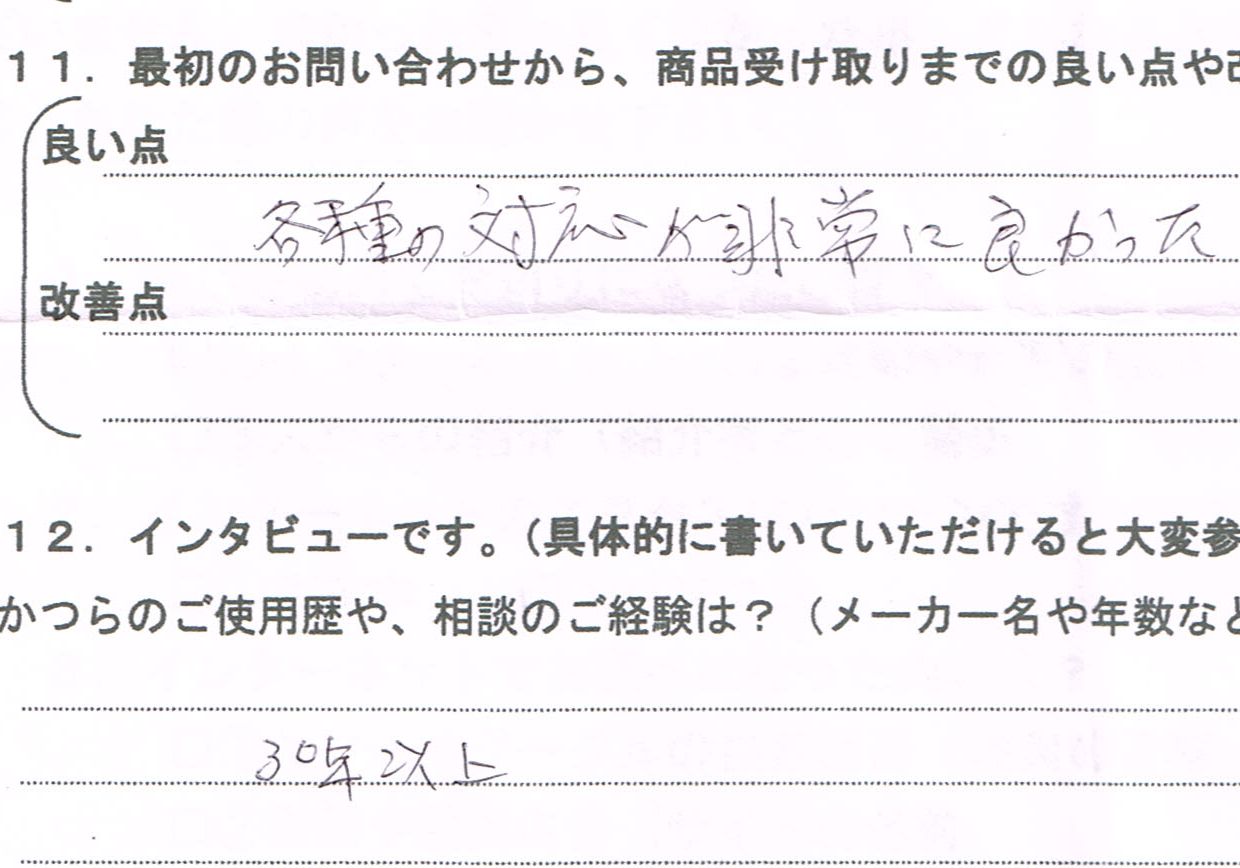 11．最初のお問い合わせから、商品受け取りまでの良い点や改
良い点
各種の対応が非常に良かった
改善点
12．インタビューです。（具体的に書いていただけると大変参
かつらのご使用歴や、相談のご経験は？（メーカー名や年数など
30年以上